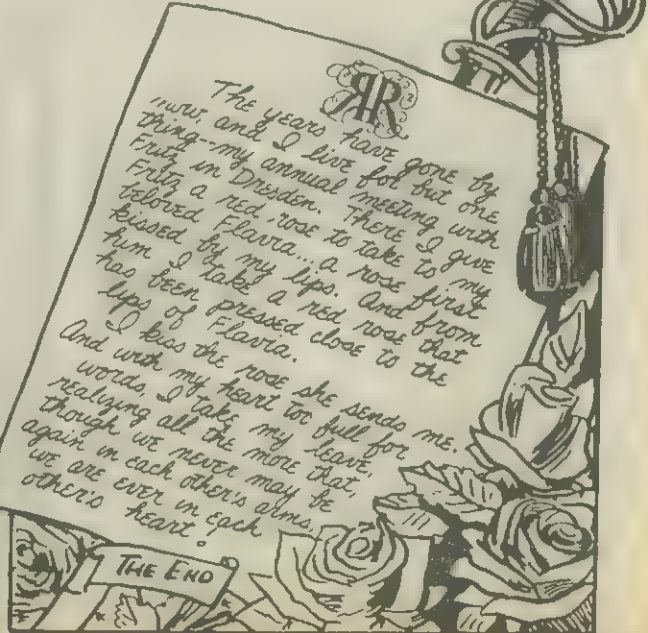 RR
The years have gone by
now, and I live for but one
thing--my annual meeting with
Fritz in Dresden. There I give
Fritz a red rose to take to my
beloved Flavia... a rose first
kissed by my lips. And from
him I take a red rose that
has been pressed close to the
lips of Flavia.
I kiss the rose she sends me.
And with my heart too full for
words, I take my leave,
realizing all the more that,
though we never may be
again in each other's arms,
we are ever in each
other's heart.
THE END